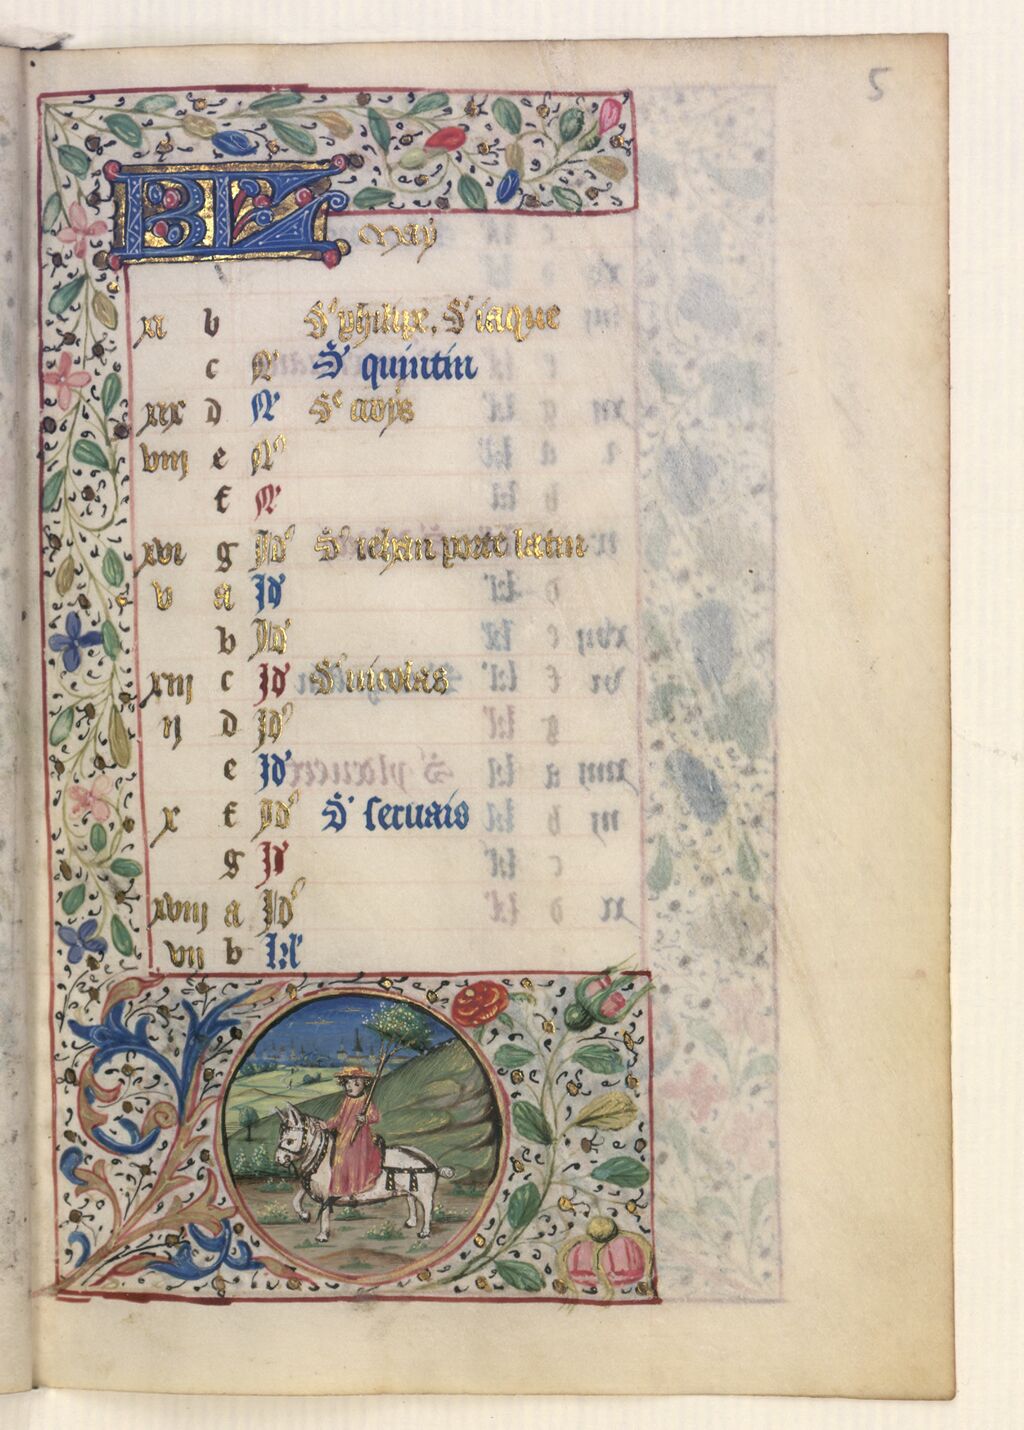 5
KL May
xi b S' phelipe. S' iaque
c N' S' quintin
xix d N' S'
viii e N'
f N'
xvi g Id' S' iehan porte latin
v a Id'
b Id'
xiii c Id' S' nicolas
ii d Id'
e Id'
x f Id' S' seruais
g Id'
xviii a Id'
vii b kl'